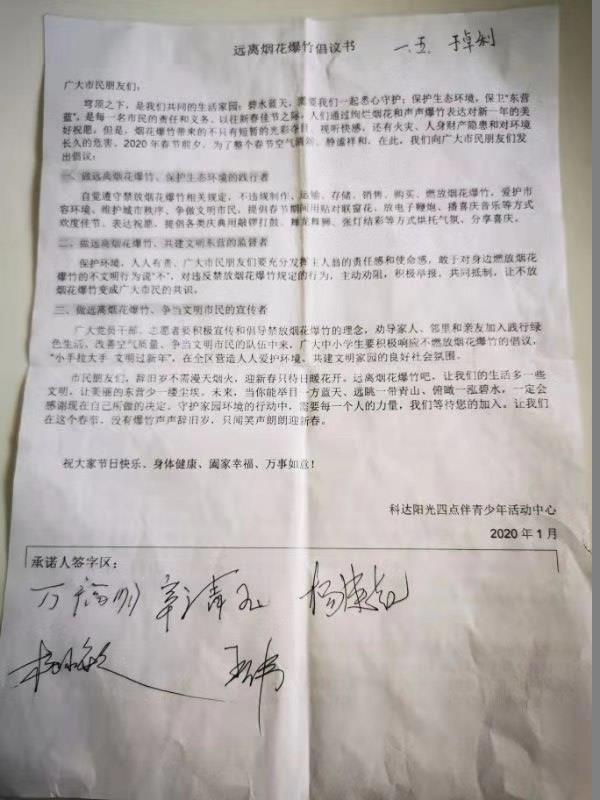 远离烟花爆竹倡议书 一.五
广大市民朋友们，
穹顶之下，是我们共同的生活家园；碧水蓝天，需要我们一起悉心守护；保护生态环境，保卫“东营
蓝”，是每一名市民的责任和义务。以往新春佳节之际，人们通过绚烂烟花和声声爆竹表达对新一年的美
好祝愿，但是，烟花爆竹带来的不只有短暂的光彩夺目、视听快感，还有火灾、人身财产隐患和对环境
长久的危害。2020年春节前夕，为了整个春节空气清新、静谧祥和，在此，我们向广大市民朋友们发
出倡议：
一、做远离烟花爆竹、保护生态环境的践行者
自觉遵守禁放烟花爆竹相关规定，不违规制作、运输、存储、销售、购买、燃放烟花爆竹，爱护市
容环境、维护城市秩序、争做文明市民，提倡春节期间用贴对联窗花、放电子鞭炮、播喜庆音乐等方式
欢度佳节、表达祝愿。提倡各类庆典用敲锣打鼓、舞龙舞狮、张灯结彩等方式烘托气氛、分享喜庆。
二、做远离烟花爆竹、共建文明东营的监督者
保护环境，人人有责，广大市民朋友们要充分发挥主人翁的责任感和使命感，敢于对身边燃放烟花
爆竹的不文明行为说“不”，对违反禁放烟花爆竹规定的行为，主动劝阻，积极举报，共同抵制，让不放
烟花爆竹变成广大市民的共识。
三、做远离烟花爆竹、争当文明市民的宣传者
广大党员干部、志愿者要积极宣传和倡导禁放烟花爆竹的理念，劝导家人、邻里和亲友加入践行绿
色生活，改善空气质量、争当文明市民的队伍中来，广大中小学生要积极响应不燃放烟花爆竹的倡议，
“小手拉大手 文明过新年”，在全区营造人人爱护环境、共建文明家园的良好社会氛围。
市民朋友们，辞旧岁不需漫天烟火，迎新春只待日暖花开。远离烟花爆竹吧，让我们的生活多一些
文明，让美丽的东营少一缕尘埃。未来，当你能举目一方蓝天、远眺一带青山、俯瞰一泓碧水，一定会
感谢现在自己所做的决定。守护家园环境的行动中，需要每一个人的力量，我们等待您的加入。让我们
在这个春季，没有爆竹声声辞旧岁，只闻笑声朗朗迎新春。
祝大家节日快乐、身体健康、阖家幸福、万事如意！
科达阳光四点伴青少年活动中心
2020年1月
承诺人签字区：